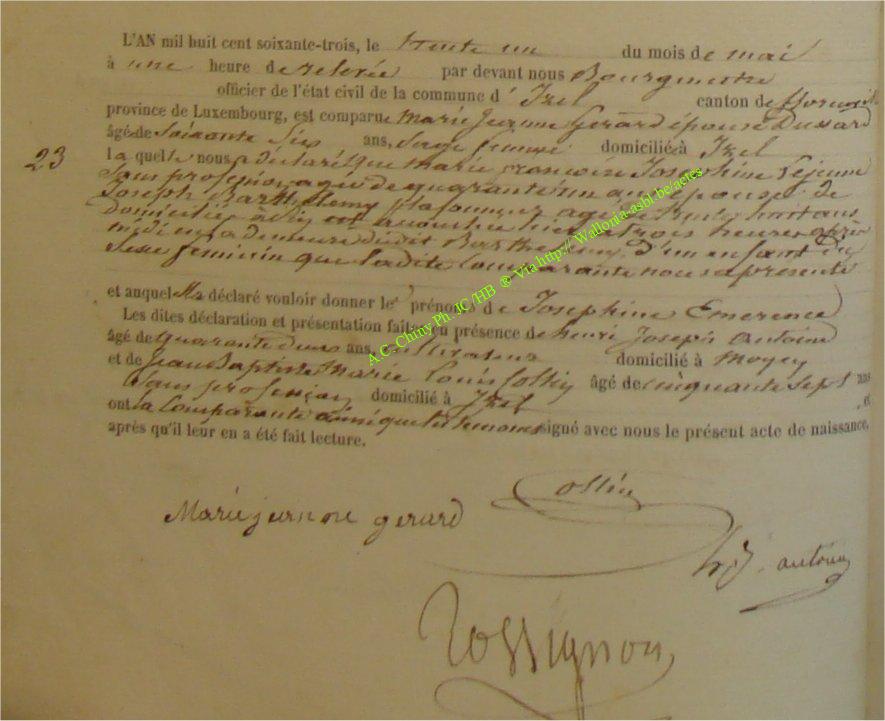 L'AN mil huit cent soixante-trois, le trente un du mois de mai
à une heure de relevée par devant nous Bourgmestre
officier de l'état civil de la commune d' Izel canton de florenville
province de Luxembourg, est comparue Marie Jeanne Gerard épouse Dussard
âgé de Soixante Six ans, Sage femme domiciliée à Izel
23
laquelle nous a déclaré que marie francoise Josephine Lejeune
Sans profession, agée de quarante un ans, épouse de
Joseph Barthelemy plafonneur agé de trente huit ans
domicilies à Izel est accouchée hier à trois heures après
midi en la demeure dudit Barthelemy, d'un enfant du
Sexe feminin que ladite Comparante nous a présenté
et auquel Elle déclaré vouloir donner les prénoms de Josephine Emerence
Les dites déclaration et présentation faites en présence de henri Joseph Antoine
âgé de quarante deux ans, cultivateur domicilié à Moyen
et de Jean Baptiste Marie Louis Collin âgé de cinquante sept ans
Sans profession domicilié à Izel , et
ont la Comparante ainsi que les temoins signé avec nous le présent acte de naissance,
après qu'il leur en a été fait lecture.
A.C. Chiny Ph. JC/HB ® Via http:// Wallonia-asbl-be/actes
Collin
Marie jeanne gerard
h J. antoine
Rossignon